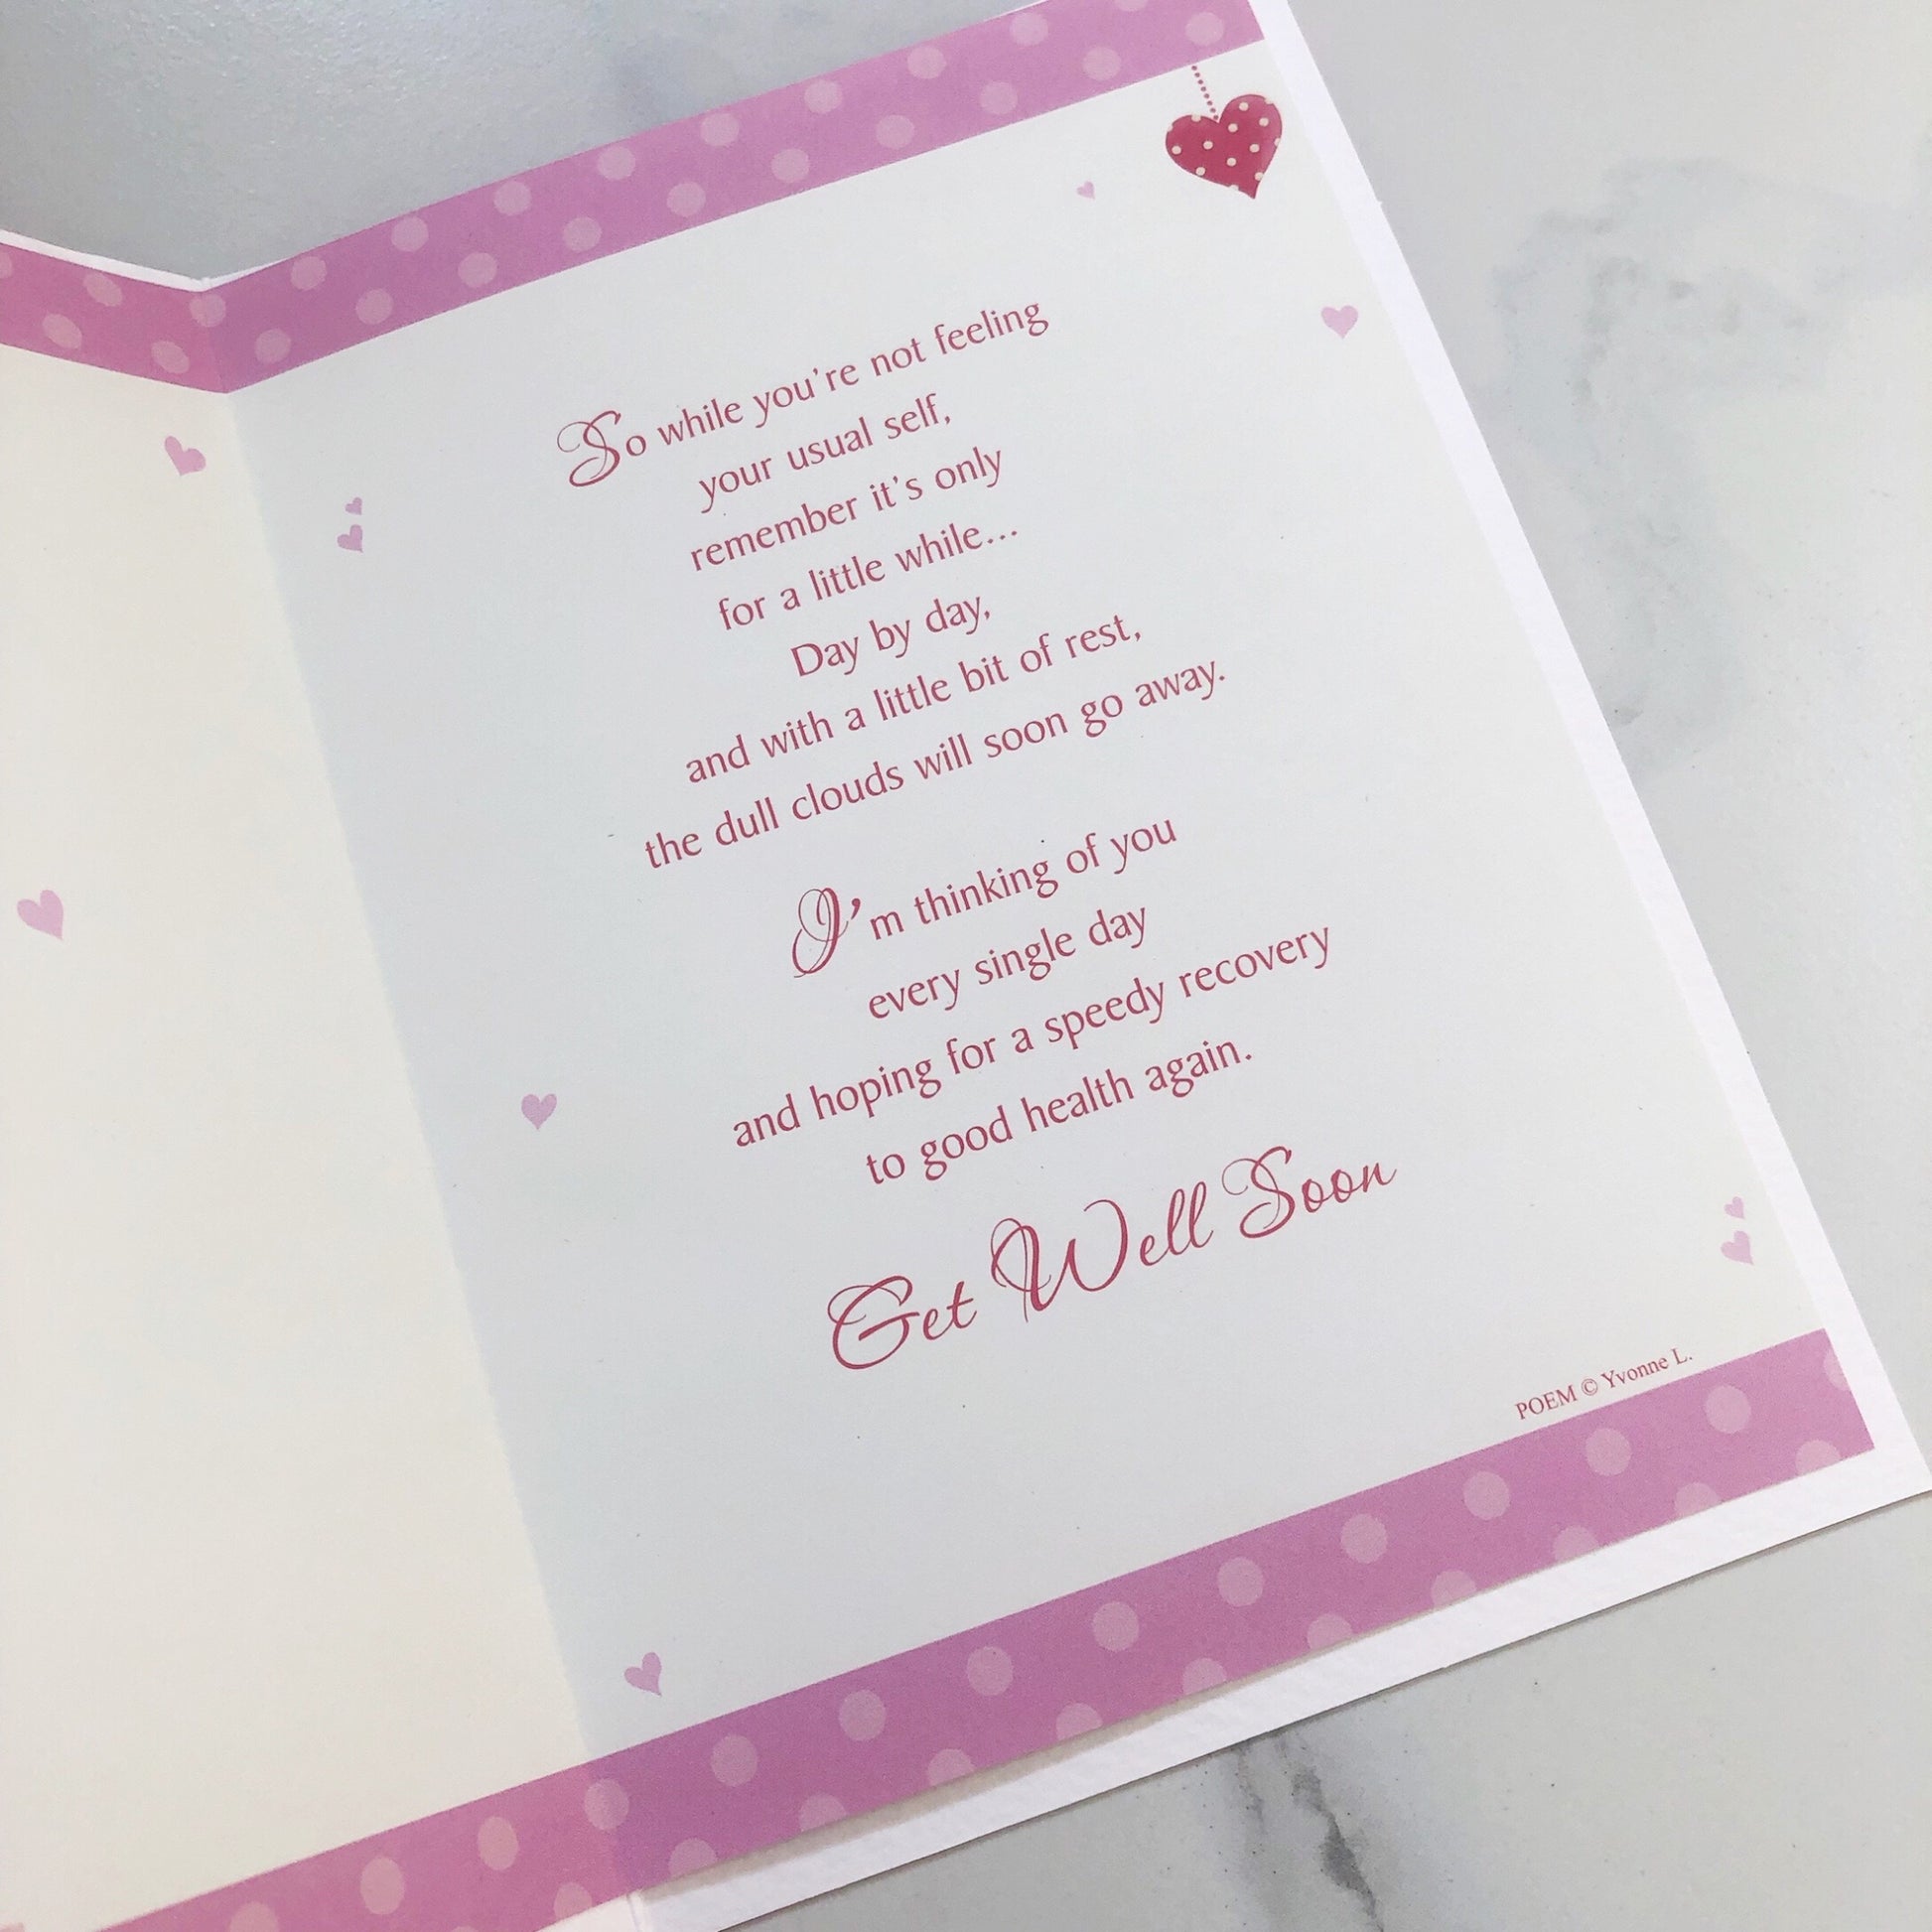 So while you're not feeling
your usual self,
remember it's only
for a little while...
Day by day,
and with a little bit of rest,
the dull clouds will soon go away.
I'm thinking of you
every single day
and hoping for a speedy recovery
to good health again.
Get Well Soon
POEM © Yvonne L.